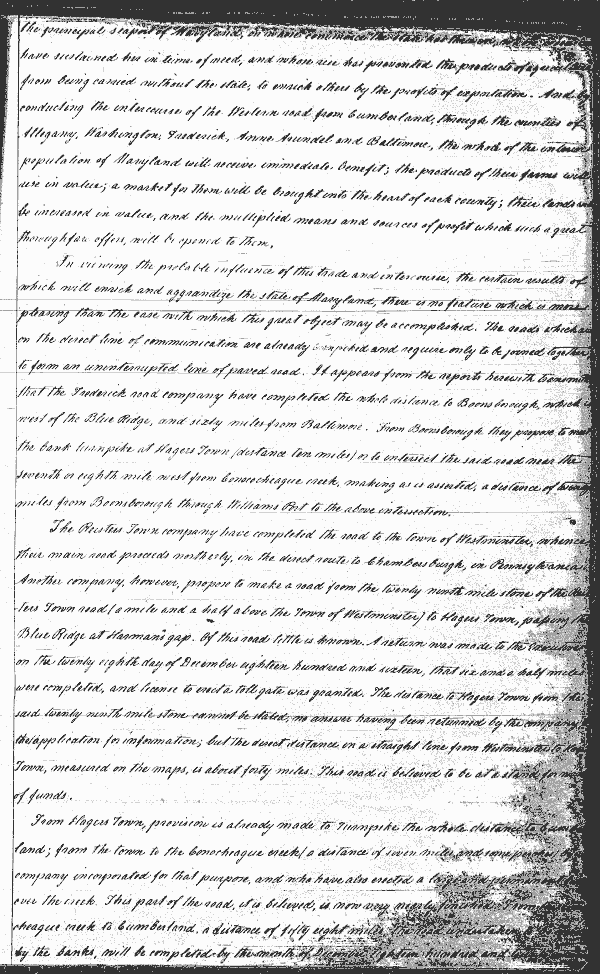 the principal seaport of Maryland, on whose commerce the state has
have sustained her in time of need, and whose rise has prevented the products of
from being carried without the state, to enrich others by the profits of exportation. And by
conducting the intercourse of the Western road from Cumberland, through the counties of
Allegany, Washington, Frederick, Anne Arundel and Baltimore, the whole of the interior
population of Maryland will receive immediate benefit; the products of their farms will
rise in value; a market for them will be brought into the heart of each county; their lands will
be increased in value, and the multiplied means and sources of profit which such a great
thoroughfare offers, will be opened to them.
In viewing the probable influence of this trade and intercourse, the certain results of
which will enrich and aggrandize the state of Maryland, there is no feature which is more
pleasing than the ease with which this great object may be accomplished. The roads which are
on the direct line of communication are already turnpiked and require only to be joined together
to form an uninterrupted line of paved road. It appears from the reports herewith
that the Frederick road company have completed the whole distance to Boonsborough, which is
west of the Blue Ridge, and sixty miles from Baltimore. From Boonsborough they propose to meet
the bank turnpike at Hagers Town (distance ten miles) or to intersect the said road near the
seventh or eighth mile west from Conococheague creek, making as is asserted, a distance of twenty
miles from Boonsborough through Williams Port to the above intersection.
The Reisters Town company have completed the road to the town of Westminster, whence
their main road proceeds northerly, in the direct route to Chambersburgh, in Pennsylvania.
Another company, however, propose to make a road from the twenty ninth mile stone of the Reis-
ters Town road (a mile and a half above the Town of Westminster) to Hagers Town, passing the
Blue Ridge at Harman's gap. Of this road little is known. A return was made to the Executive
on the twenty eighth day of December eighteen hundred and sixteen, that six and a half miles
were completed, and license to erect a toll gate was granted. The distance to Hagers Town from the
said twenty ninth mile stone cannot be stated, no answer having been returned by the company to
the application for information; but the direct distance in a straight line from Westminster to
Town, measured on the maps, is about forty miles. This road is believed to be at a stand for
of funds.
From Hagers Town, provision is already made to Turnpike the whole distance to Cumber-
land; from the town to the Conocheague creek (a distance of seven miles and some perches) by
company incorporated for that purpose, and who have also erected a large and permanent
over the creek. This part of the road, it is believed, is now very nearly finished. From
cheague creek to Cumberland, a distance of fifty eight miles the road undertaken
by the banks, will be completed by the month of eighteen hundred and